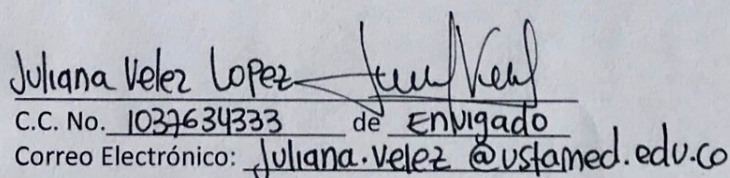 Juliana Velez Lopez
C.C. No. 1037634333 de Envigado
Correo Electrónico: Juliana.velez @ustamed.edu.co